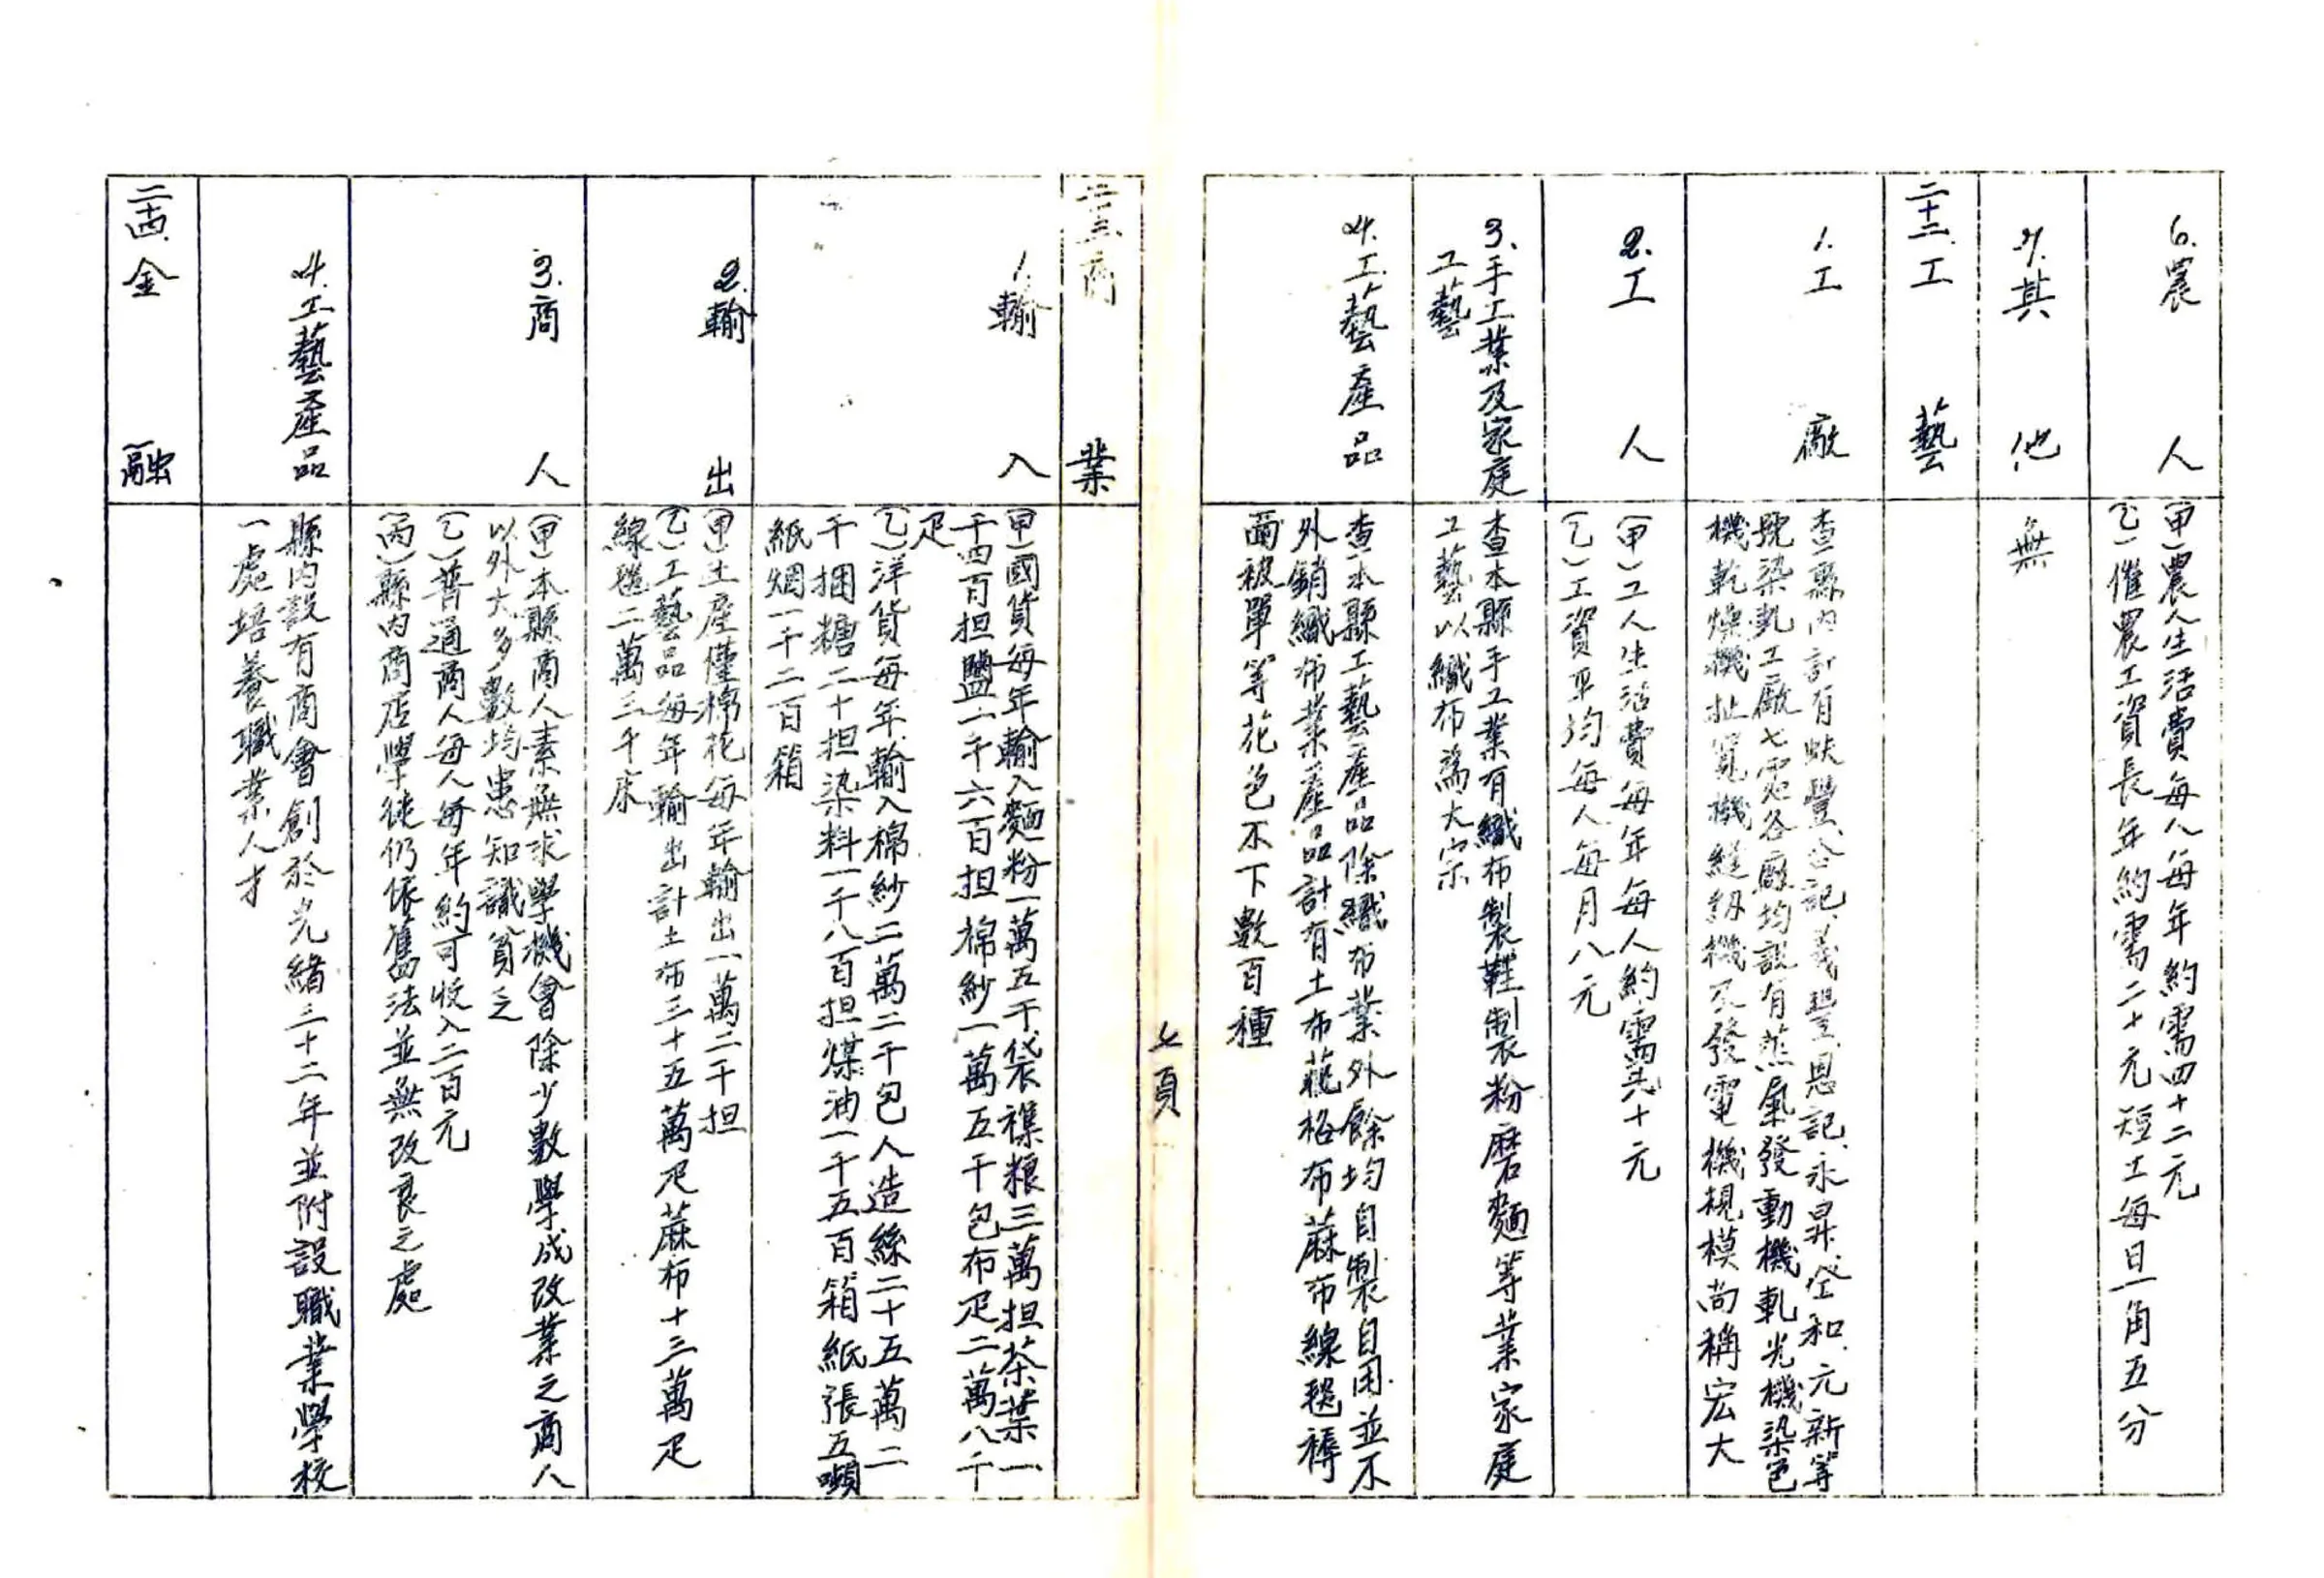 6.農人
(甲)農人生活費每人每年約需四十二元
(乙)催農工資長年約需二十元短工每日一角五分
7.其他
無
二十二.工藝
1.工廠
查縣內計有蚨豐.公記.義豐.恩記.永昇.岱和.元新等
號染軋工廠七處各廠均設有蒸氣發動機軋光機染色
機乾燥機扯寬機縫紉機及發電機規模尚稱宏大
2.工人
(甲)工人生活費每年每人約需六十元
(乙)工資平均每人每月八元
3.手工業及家庭
工藝
查本縣手工業有織布製鞋製粉磨麵等業家庭
工藝以織布為大宗
4.工藝產品
查本縣工藝產品除織布業外餘均自製自用並不
外銷織布業產品計有土布花格布蔴布線毯褥
面被單等花色不下數百種
七頁
二十三.商業
1.輸入
(甲)國貨每年輸入麵粉一萬五千袋襍粮三萬担茶葉一
千四百担鹽二千六百担棉紗一萬五千包布疋二萬八千
疋
(乙)洋貨每年輸入棉紗二萬二千包人造絲二十五萬二
千捆糖二十担染料一千八百担煤油一千五百箱紙張五噸
紙烟一千二百箱
2.輸出
(甲)土產僅棉花每年輸出一萬二千担
(乙)工藝品每年輸出計土布三十五萬疋蔴布十三萬疋
線毯二萬三千床
3.商人
(甲)本縣商人素無求學機會除少數學成改業之商人
以外大多數均患知識貧乏
(乙)普通商人每人每年約可收入二百元
(丙)縣內商店學徒仍依舊法並無改良之處
4.工藝產品
縣內設有商會創於光緒三十二年並附設職業學校
一處培養職業人才
二十四.金融